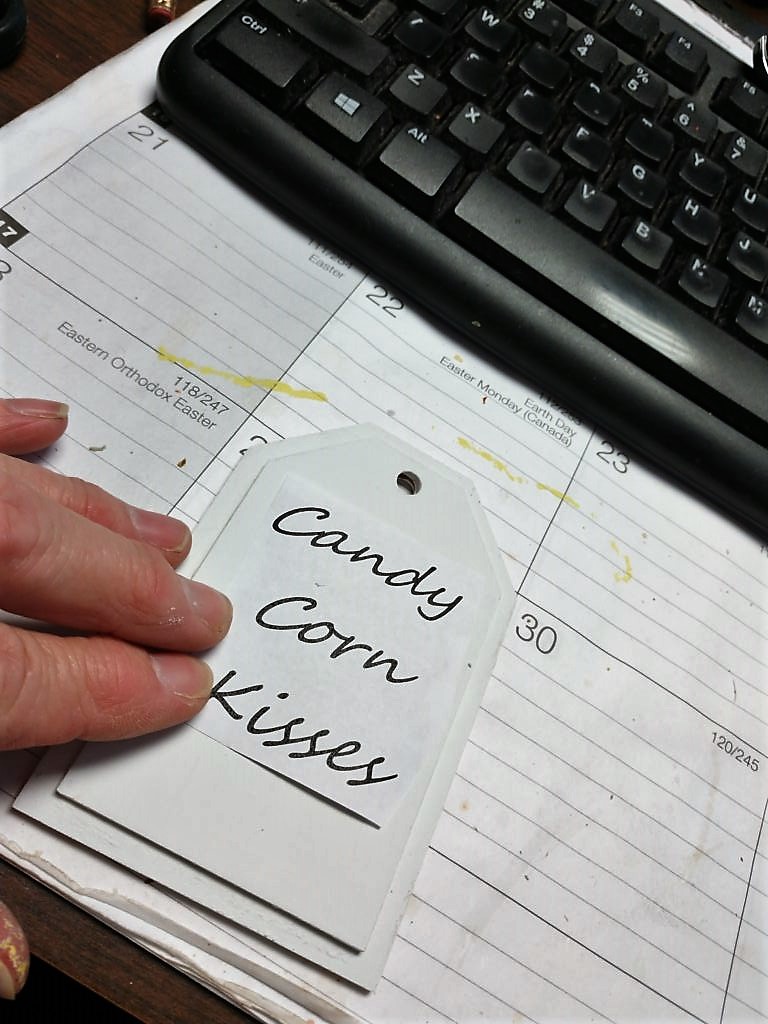 Ctrl
W
#
3
F3
F4
$
4
%
5
F5
^
6
&
7
Z
Alt
X
F
Y
G
U
V
H
B
J
M
21
17
Easter
22
Eastern Orthodox Easter
118/247
Easter Monday (Canada)
Earth Day
23
30
120/245
Candy
Corn
Kisses